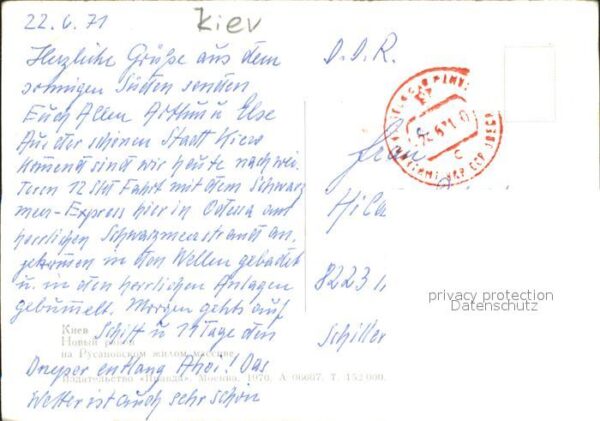 22.6.71
Kiev
Herzliche Grüße aus dem
sonnigen Süden senden
Euch Allen Arthur u Else
Aus der schönen Stadt Kiew
kommend sind wir heute nach wei-
teren 12 Std Fahrt mit dem Schwarz
meer-Express hier in Odessa am
herrlichen Schwarzmeerstrand an,
gekommen in den Wellen gebadet
u. in den herrlichen Anlagen
gebummelt. Morgen gehts auf
Schiff u 11 Tage den
Dneper entlang Ahoi! Das
Wetter ist auch sehr schön
D.D.R.
Frau
Hilda
8223
Schiller
Киев
Новый
на Русановском жилом массиве
Издательство «Правда». Москва. 1970. А 06667. Т. 152 000.
privacy protection
Datenschutz